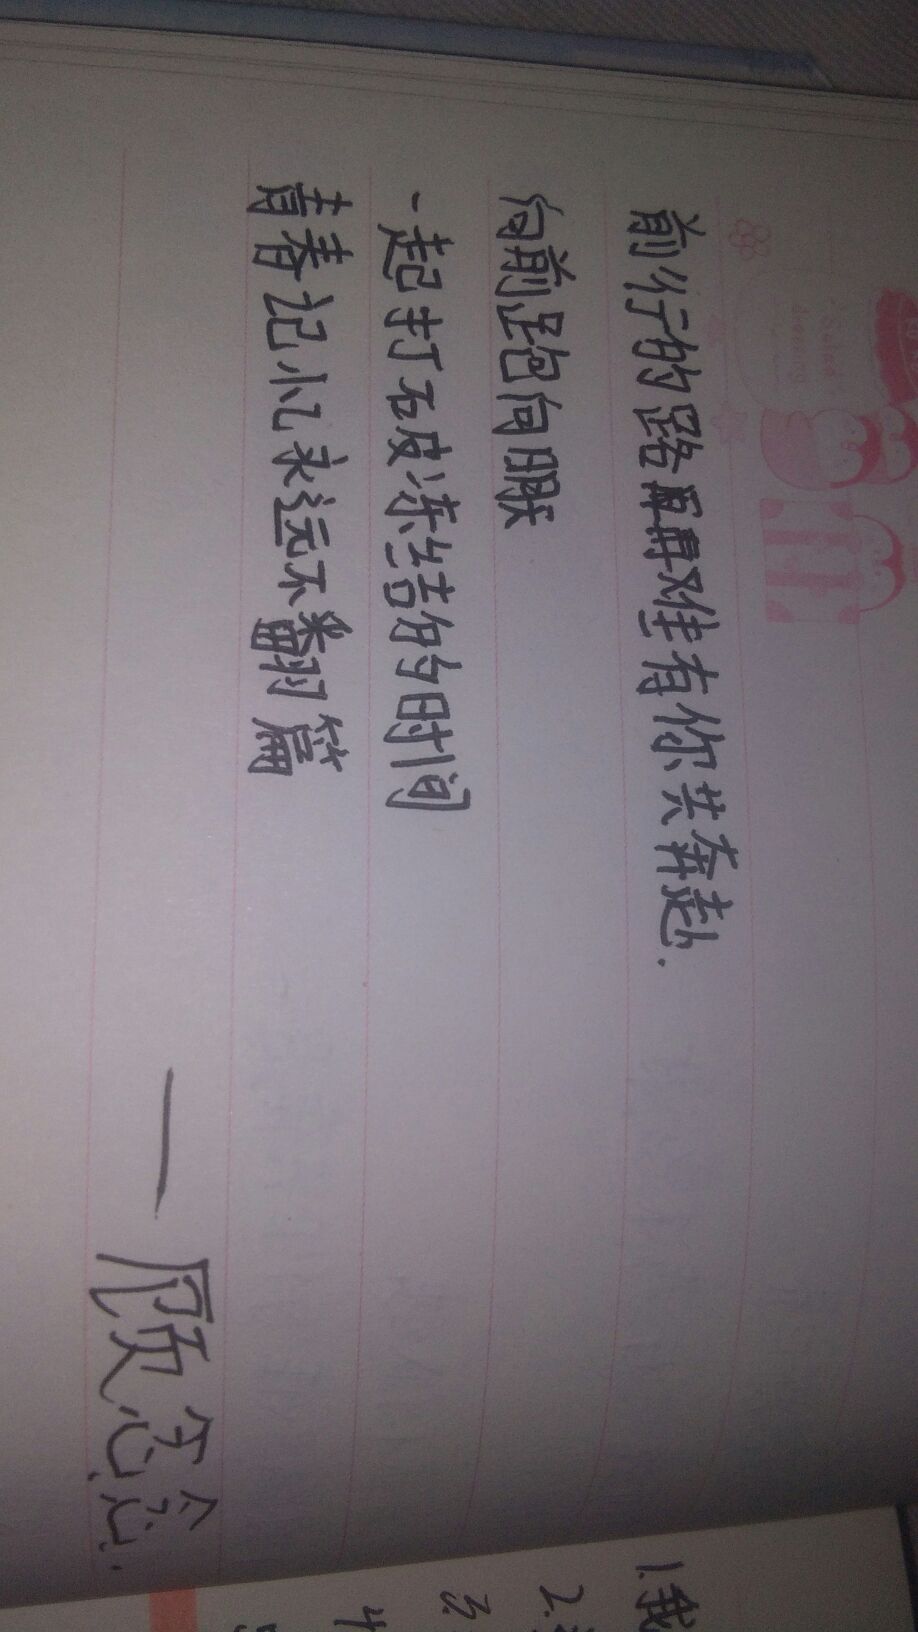 前行的路再难有你共奔赴.
向前跑向朦
一起打破冻结的时间
青春记忆永远不翻篇
—顾念念.
1.我
2.
3.
4